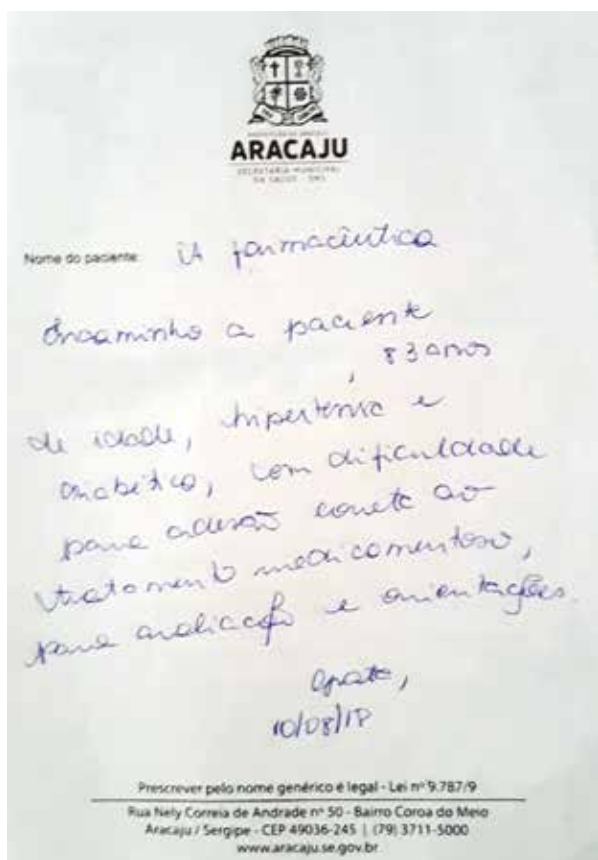 PREFEITURA DE ARACAJU
ARACAJU
SECRETARIA MUNICIPAL
DA SAÚDE - SMS
Nome do paciente: À farmacêutica
Encaminho a paciente
, 83 anos
de idade, hipertensa e
diabética, com dificuldade
para adesão correta ao
tratamento medicamentoso,
para avaliação e orientações.
Grata,
10/08/18
Prescrever pelo nome genérico é legal - Lei nº 9.787/9
Rua Nely Correia de Andrade nº 50 - Bairro Coroa do Meio
Aracaju / Sergipe - CEP 49036-245 | (79) 3711-5000
www.aracaju.se.gov.br